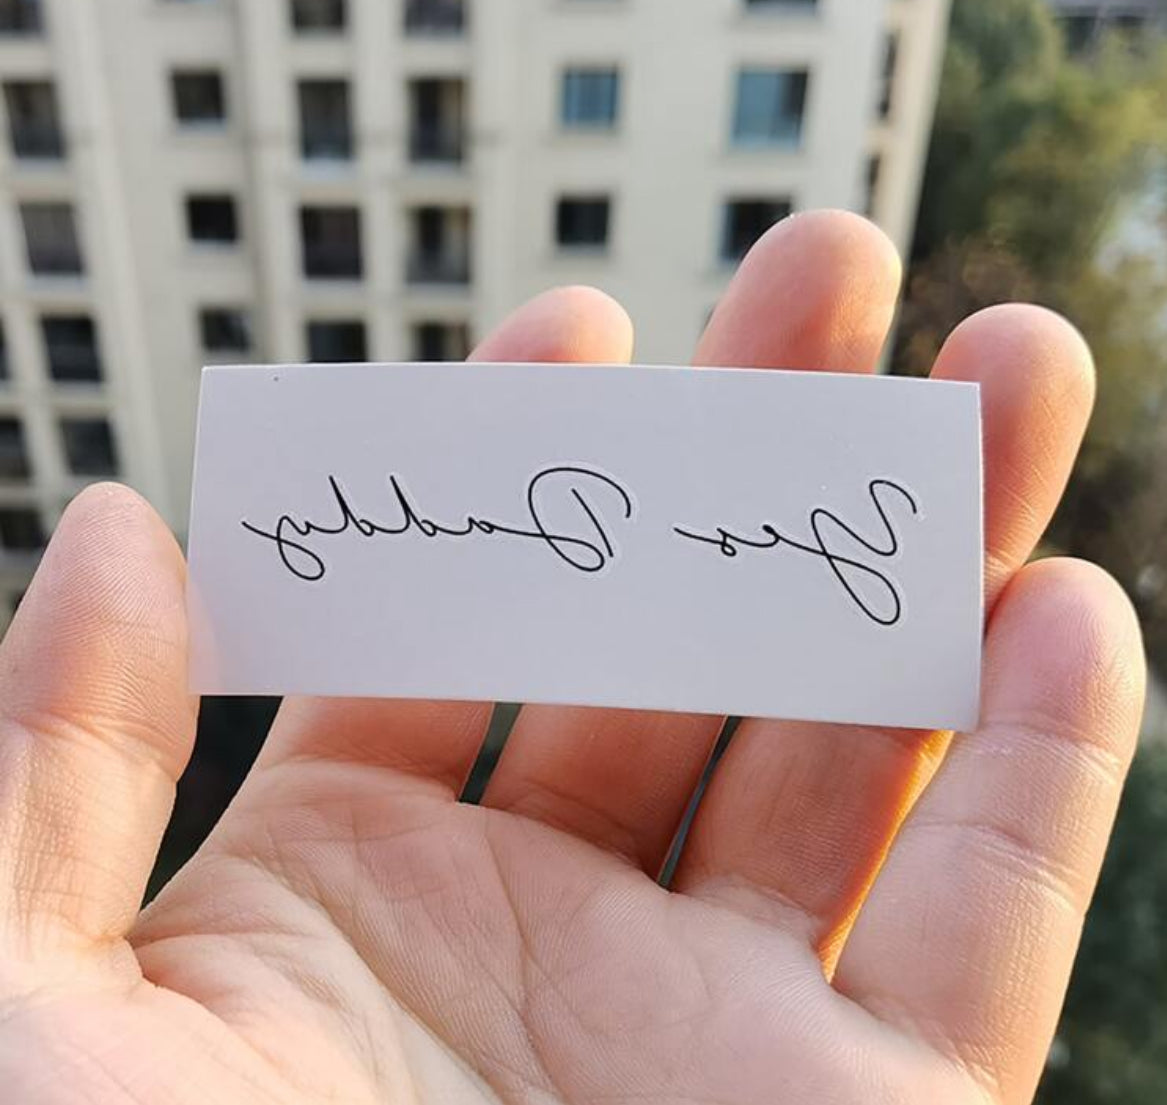 Yes Daddy